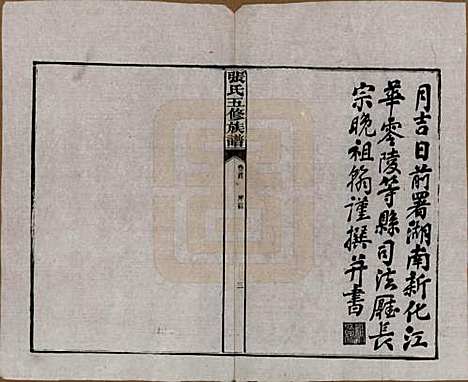 月吉日前署湖南新化江
華零陵等縣司法廳長
宗晚祖翰謹撰并書
張氏五修族譜
三